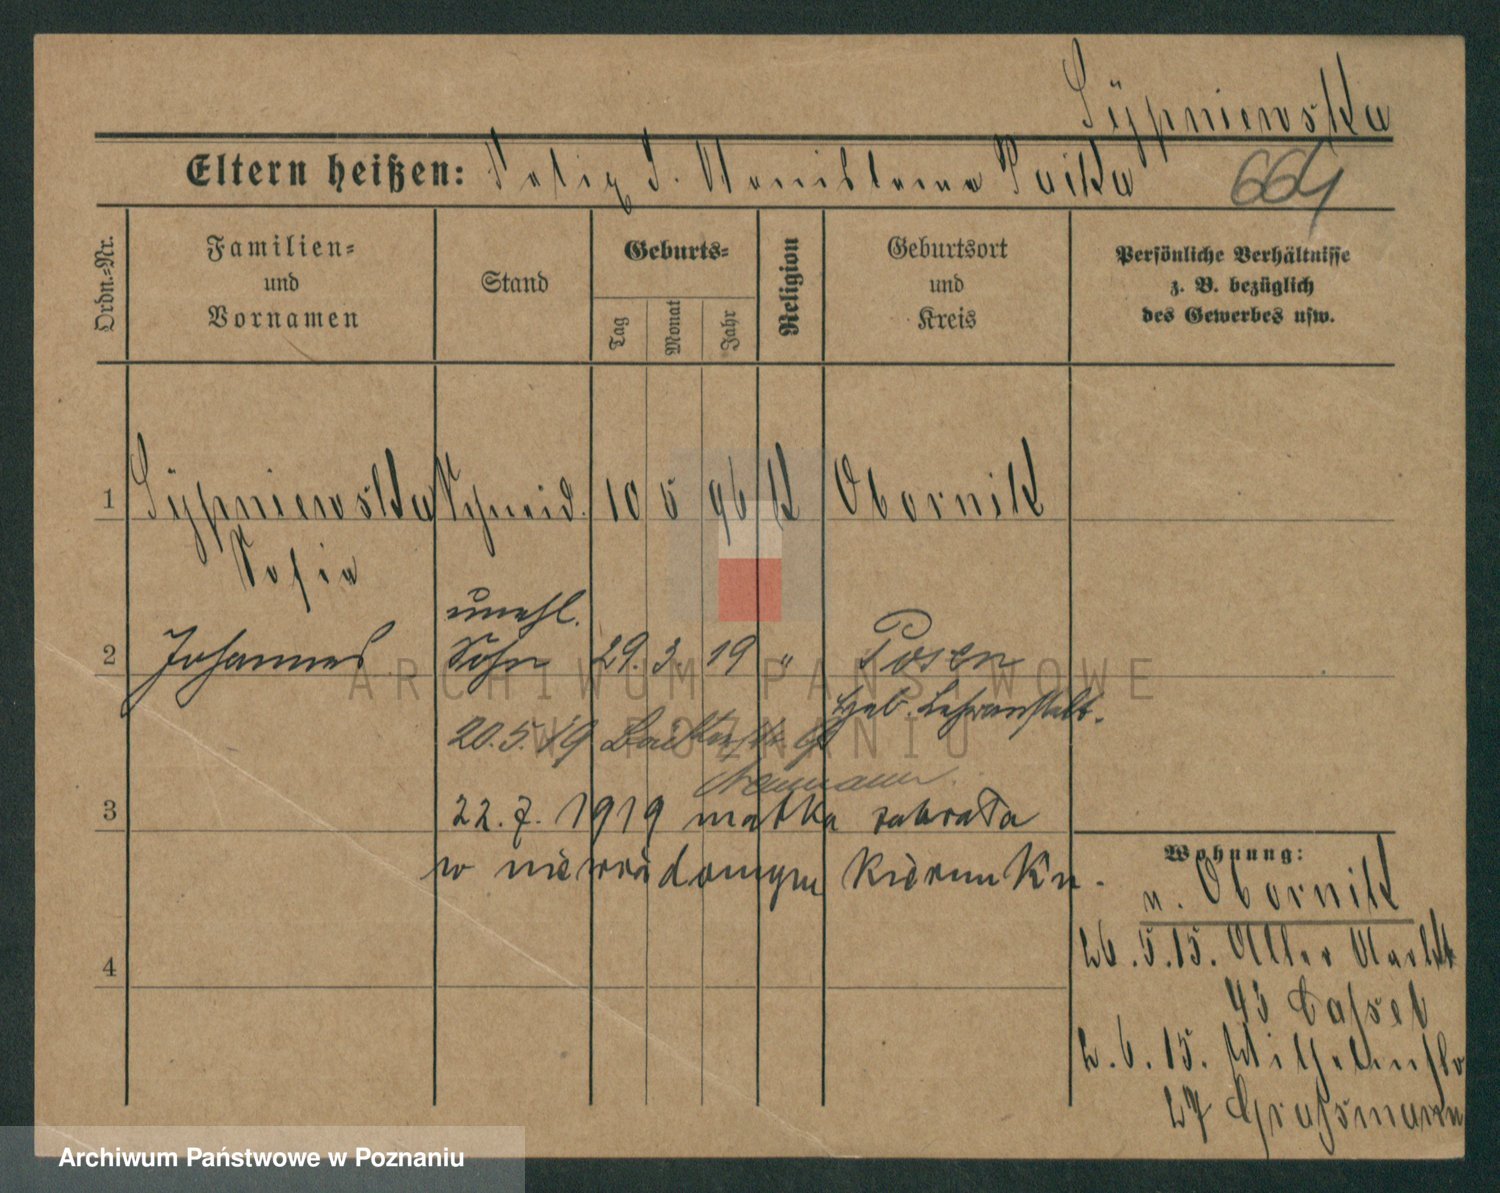 Sÿpniewska
Eltern heißen: Felix u. Stanislawa Paika
664
Ordn.=Nr.
Familien=
und
Vornamen
Stand
Geburts=
Tag
Monat
Jahr
Religion
Geburtsort
und
Kreis
Persönliche Verhältnisse
z. B. bezüglich
des Gewerbes usw.
1 Sÿpniewska Schneid. 10 5 96 K Obornik
Sofie
unehl.
2 Johannes Sohn 29. 3. 19 " Posen
Heb. Lehranstalt.
20.5.19
Neumann.
3 22. 7. 1919 matka zabrała
w niewiadomym kierunku.
4
Wohnung:
n. Obornik
26.5.15. Alter Markt
43 Cassel
2.6.15. Wilhelmstr
27 Grassmann
ARCHIWUM PAŃSTWOWE
W POZNANIU
Archiwum Państwowe w Poznaniu